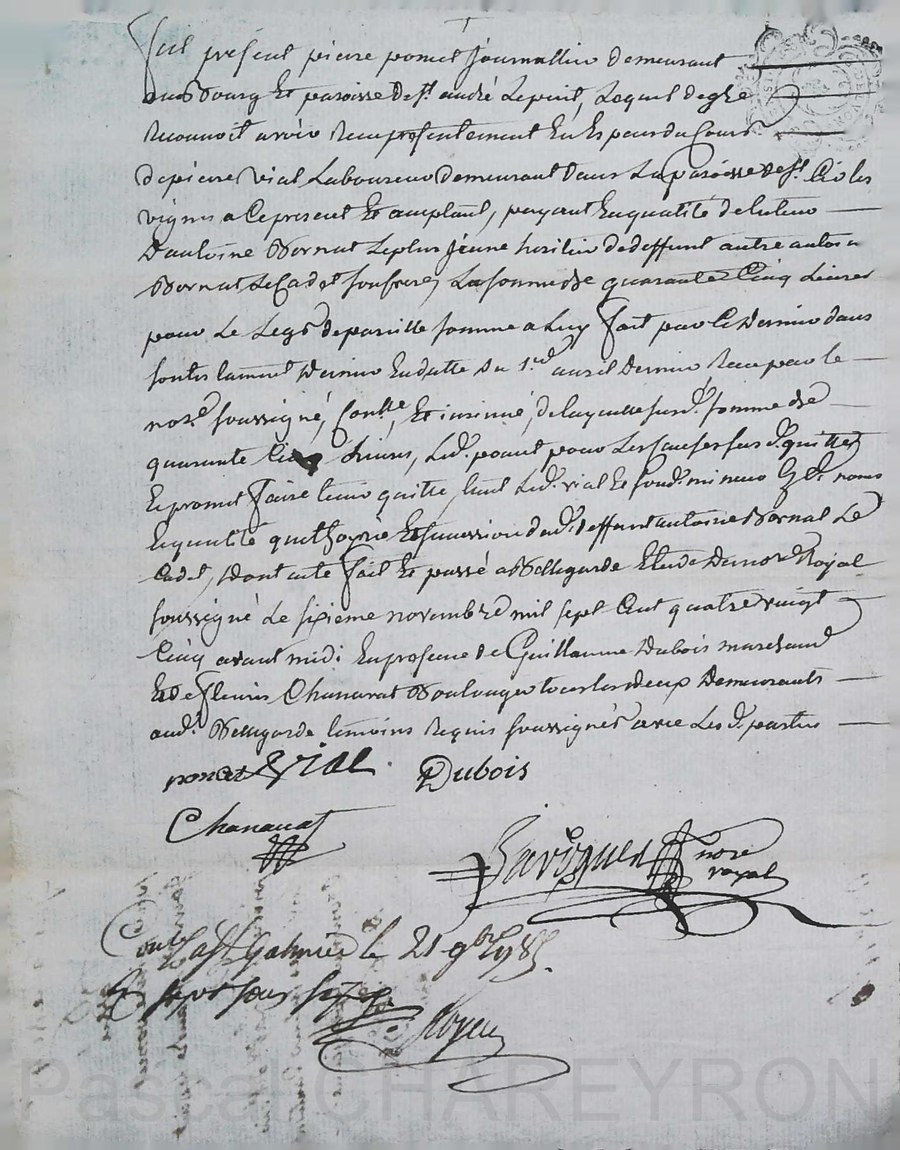 Fut présent pierre poncet Journallier demeurant
au Bourg Et paroisse de St. andré Lepuit, Lequel degré
Reconnoit avoir Receu présentement En Espece du Cours
de pierre vial Laboureur demeurant dans La paroisse de St. Cir les
vignes a Ce present Et acceptant, payant En qualité de tuteur
D'antoine Bornat Le plus Jeune heritier de deffunt autre antoine
Bornat Le Cadet son frere, La somme de quarante Cinq Livres
pour Le Legs de pareille somme a Luy fait par Ce Dernier dans
son testament Dernier En datte du 1er. avril Dernier Receu par le
nore. soussigné, Contlé, Et insinué, de laquelle susd. somme de
quarante Cinq Livres, Led. poncet pour Les Causes susd. quitte
Et promet faire tenir quitte tant Led. vial Et Son d. mineur
En qualité qu'hoyrie Et succession dud. deffunt antoine Bornat Le
Cadet, Dont acte fait Et passé a Bellegarde Etude Du nore. Royal
soussigné Le sixieme novembre mil sept Cent quatre vingt
Cinq avant midi En presence de Guillaume Dubois marchand
Et de fleuris Chanavat Boulanger tous les deux Demeurants
aud. Bellegarde temoins Requis soussignés avec Les d. parties
poncet Vial Dubois
Chanavat
nore
royal
Contlé a St Galmier le 21 9bre 1785.